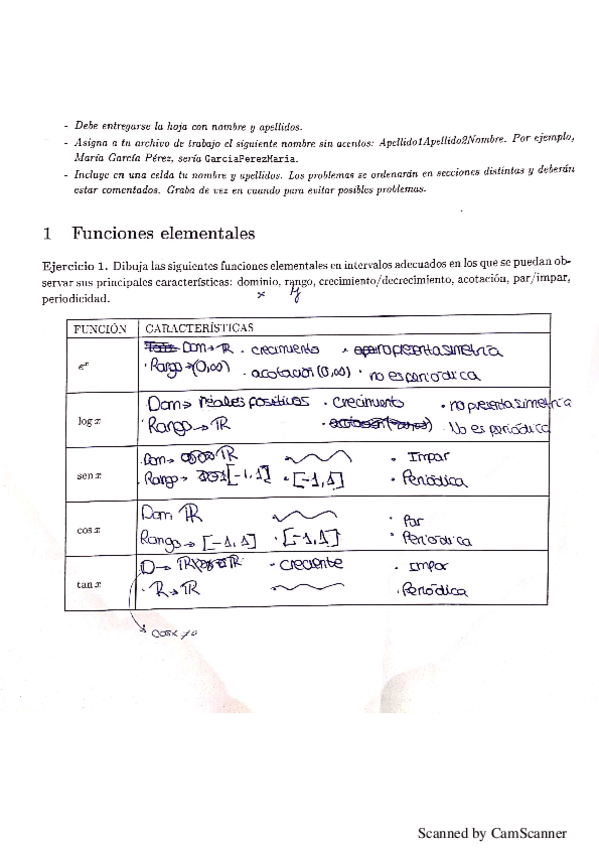 - Debe entregarse la hoja con nombre y apellidos.
- Asigna a tu archivo de trabajo el siguiente nombre sin acentos: Apellido1Apellido2Nombre. Por ejemplo,
María García Pérez, sería GarciaPerezMaria.
- Incluye en una celda tu nombre y apellidos. Los problemas se ordenarán en secciones distintas y deberán
estar comentados. Graba de vez en cuando para evitar posibles problemas.
1 Funciones elementales
Ejercicio 1. Dibuja las siguientes funciones elementales en intervalos adecuados en los que se puedan ob-
servar sus principales características: dominio, rango, crecimiento/decrecimiento, acotación, par/impar,
periodicidad.
x y
FUNCIÓN CARACTERÍSTICAS
Dom→ ℝ · crecimiento · no presenta simetría
eˣ
· Rango→(0,∞) · acotación (0,∞) · no es periodica
Dom→ reales positivos · Crecimiento · no presenta simetría
log x
Rango→ ℝ · No es periódica
Dom→ ℝ · Impar
sen x
· Rango→ [-1,1] · [-1,1] · Periódica
Dom ℝ · Par
cos x
Rango→ [-1,1] · [-1,1] · Periodica
D→ ℝ · creciente · Impar
tan x
· R→ ℝ · Periódica
cos x ≠ 0
Scanned by CamScanner